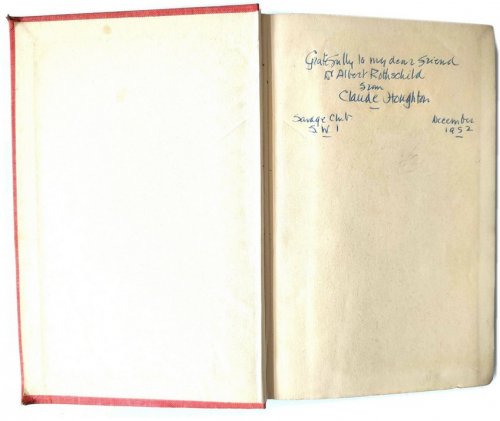 Gratefully to my dear friend
Dr Albert Rothschild
from
Claude Houghton
Savage Club
S W 1
December
1952